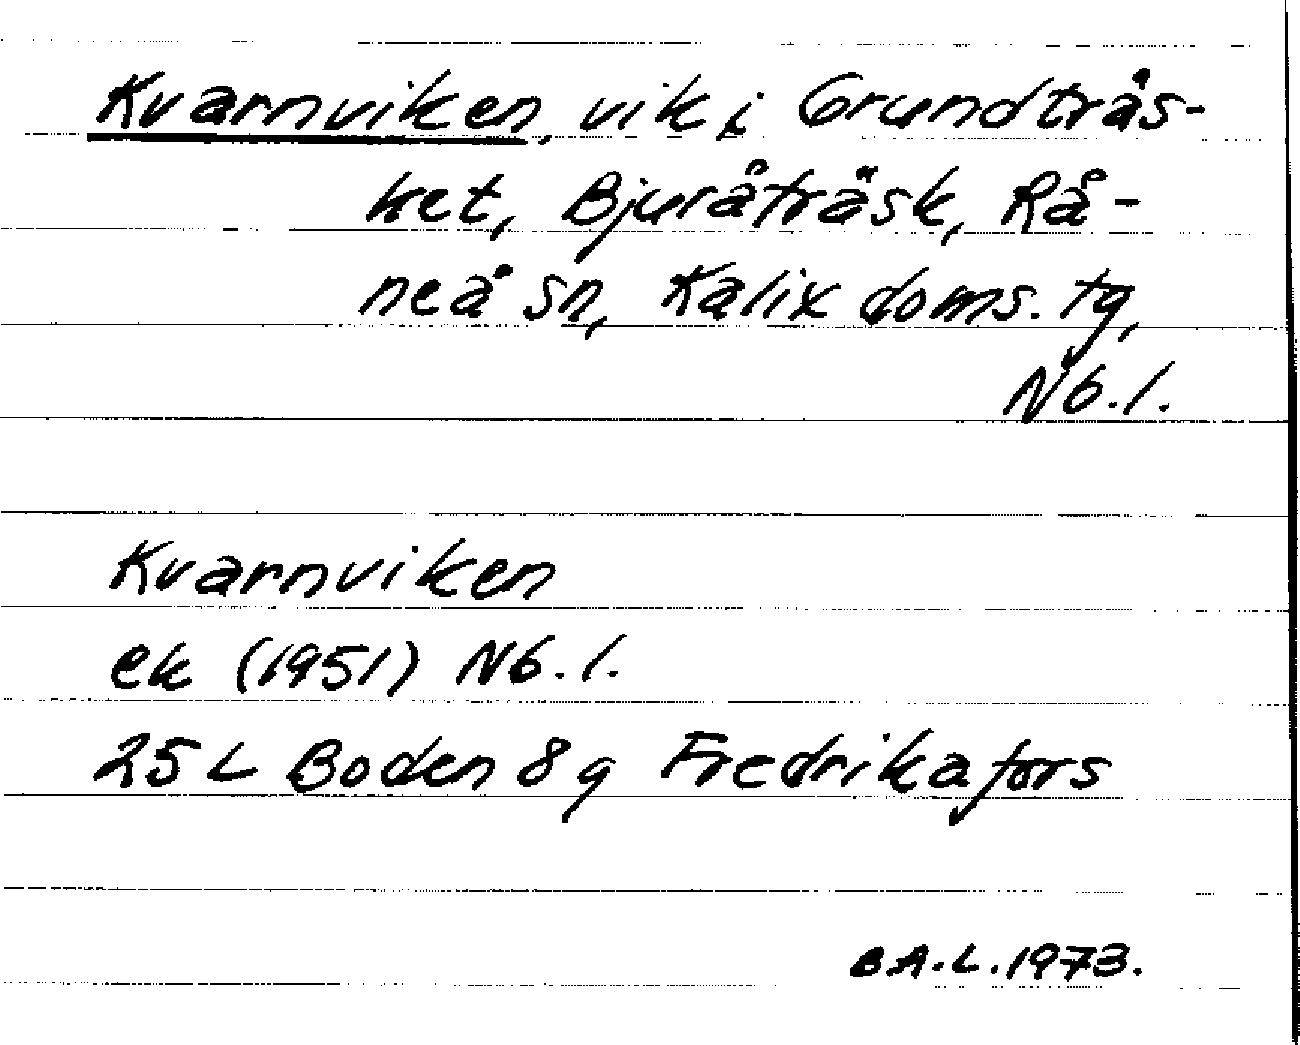 Kvarnviken, vik i Grundträs-
ket, Bjuråträsk, Rå-
neå sn, Kalix doms. tg,
Nb. l.
Kvarnviken
ek (1951) Nb. l.
25 L Boden 8 g Fredrikafors
B.A.L. 1973.